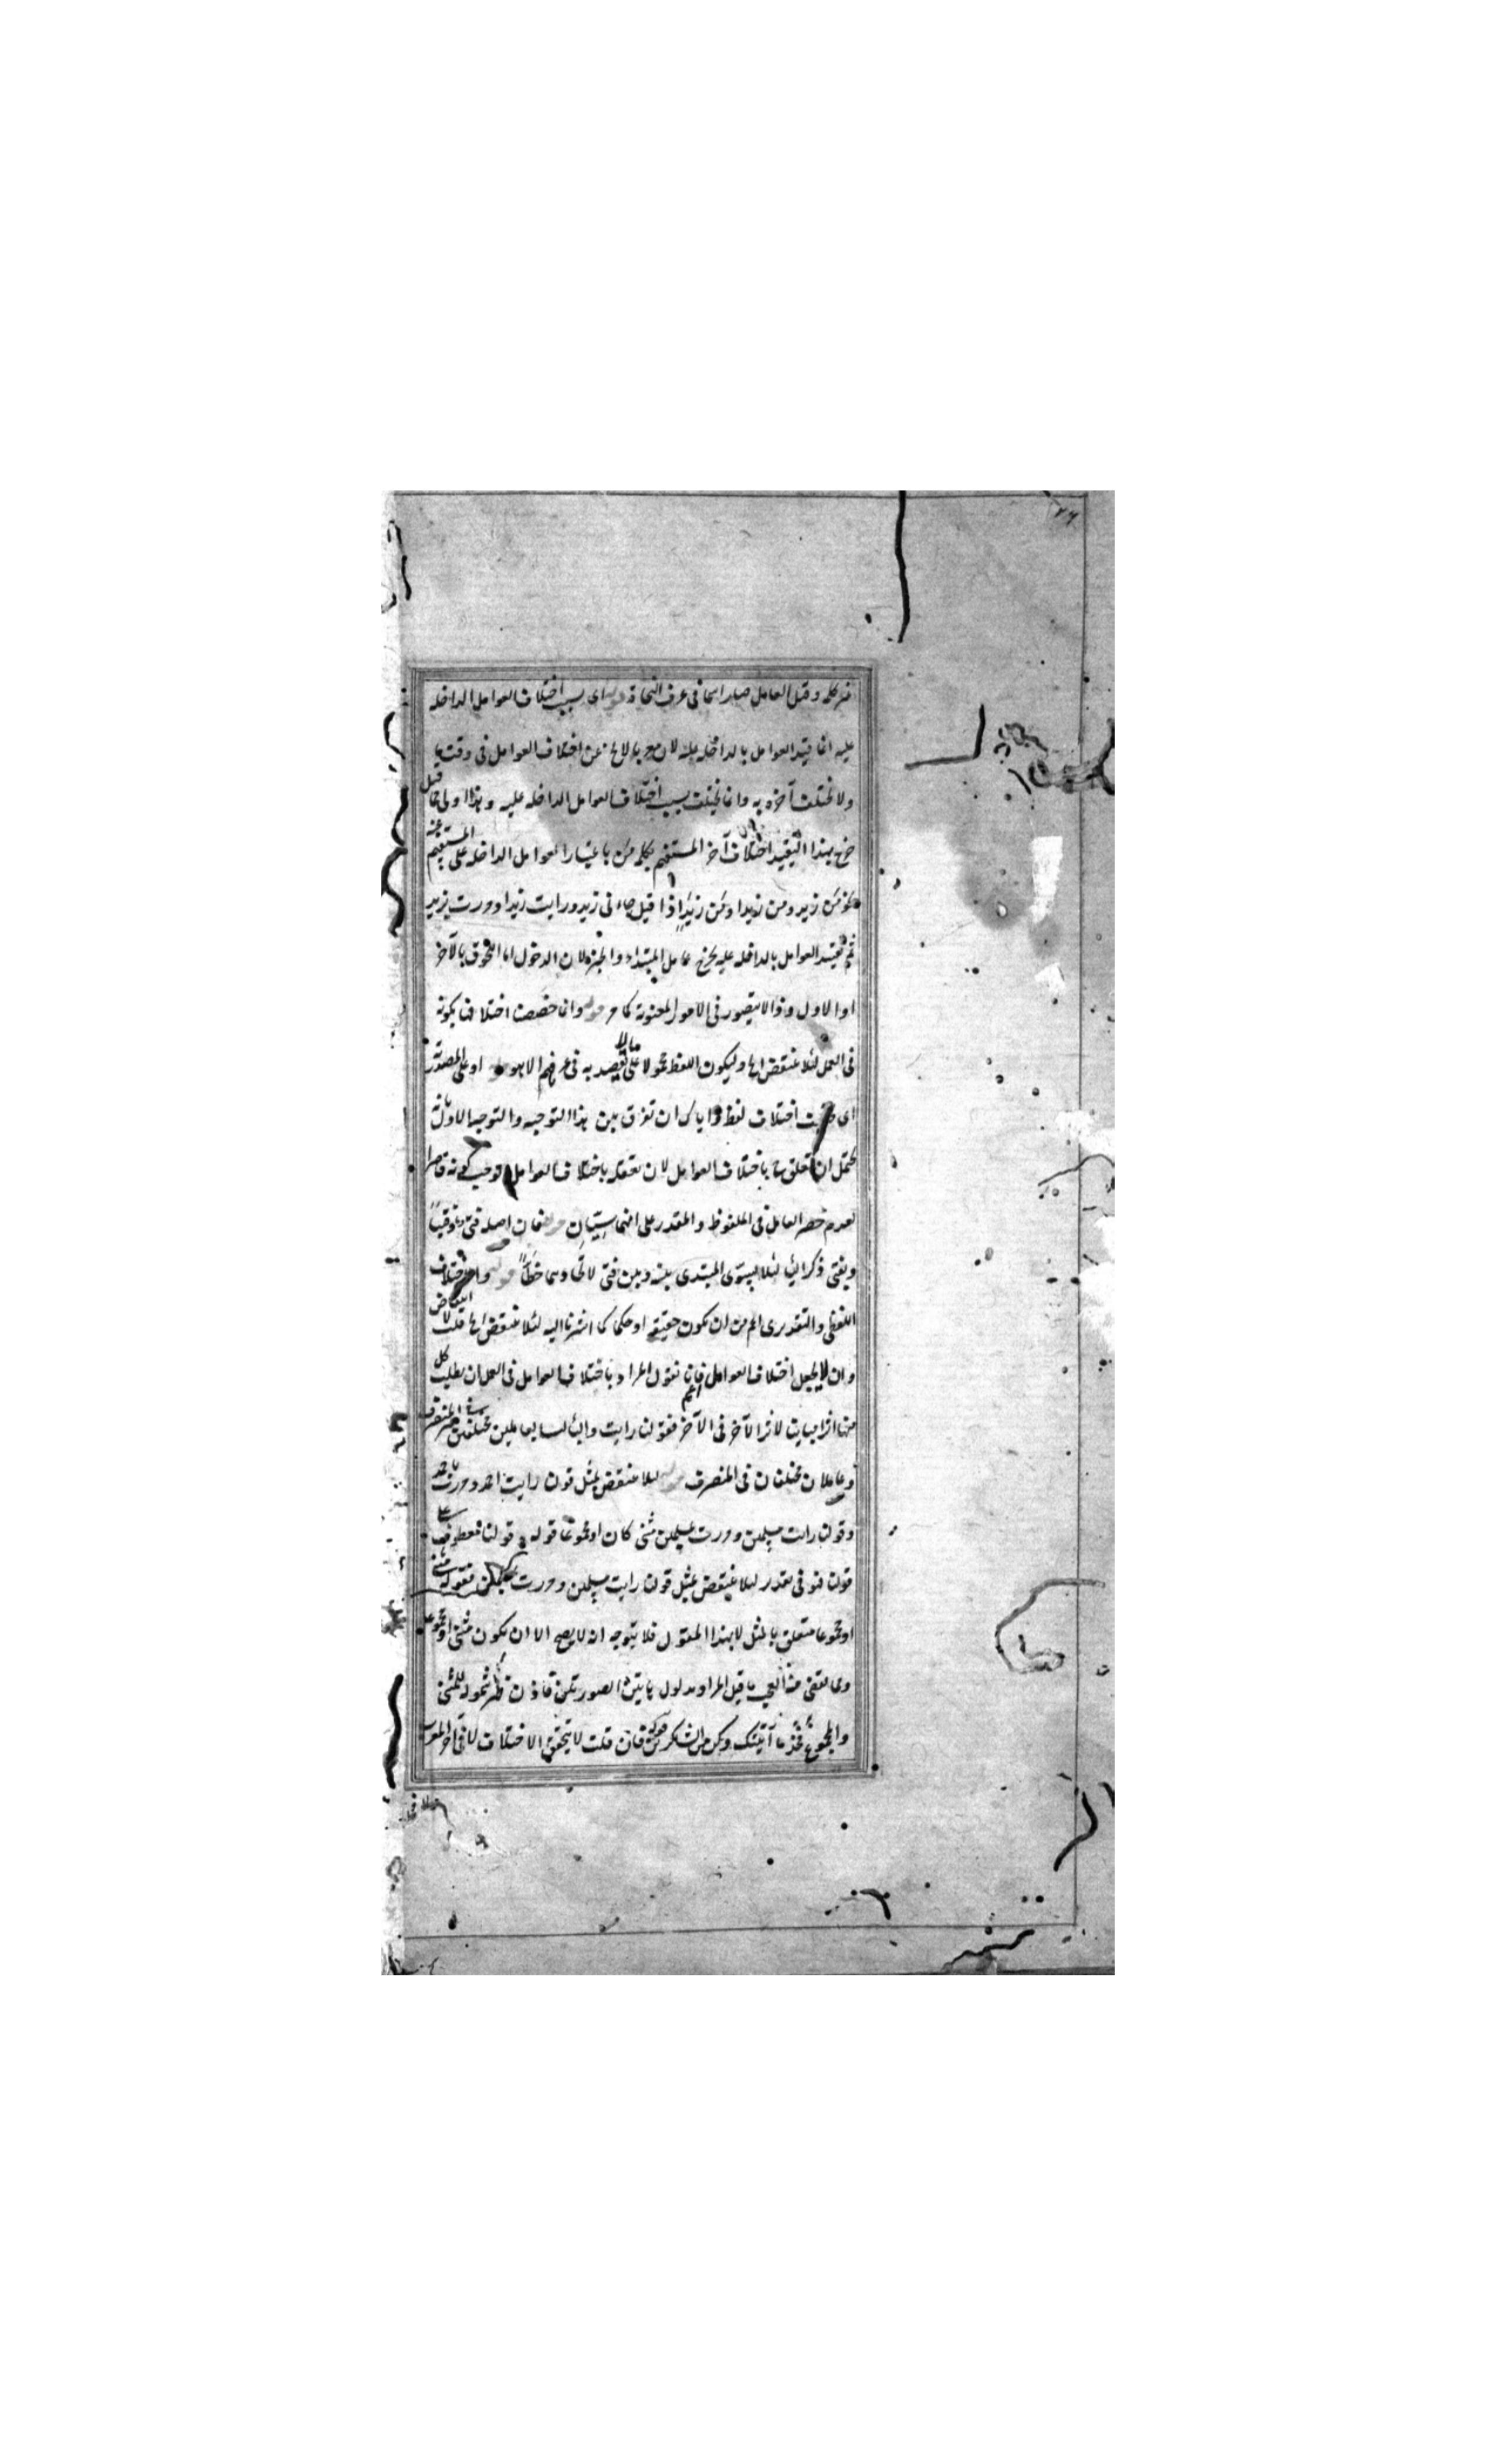 غير كلمة وقبل العامل صار اسما في عرف النحاة قوله اى بسبب اختلاف العوامل الداخلة
عليه انما قيد العوامل بالداخلة عليه لان لا يخ عن اختلاف العوامل في وقت ما
ولا يختلف آخره به وانما يختلف بسبب اختلاف العوامل الداخلة عليه وهذا اولى مما قيل
خرج بهذا التقييد اختلاف آخر المستفهم بكلمة من باعتبار العوامل الداخلة على المستفهم عنه
نحو من زيد ومن زيدا ومن زيد اذا قيل جاءنى زيد ورايت زيدا ومررت بزيد
ثم تقييد العوامل بالداخلة عليه يخرج عامل المبتداء والخبر لان الدخول اما اللحوق بالآخر
او الاول وذا لا يتصور في الامور المعنوية كما مر قوله وانما خصصت اختلافها بكونه
في العمل لئلا ينتقض اه وليكون اللفظ محمولا على ما لا يقصد به في عرفهم الا هو قوله او على المصدرية
اى اختلاف لفظ واياك ان تفرق بين هذا التوجيه والتوجيه الاول بانه
يحتمل ان تعلق باختلاف العوامل لان تعقله باختلاف العوامل توجب كونه قاصرا
لعدم حصر العامل في الملفوظ والمقدر على انهما سيان قوله فان اصله فتى وقيا
وبقى ذكر الياء لئلا يستوى المبتدى بينه وبين فتى لاتحادهما خطا قوله والاختلاف
اللفظى والتقديرى اعم من ان يكون حقيقة او حكما كما اشرنا اليه لئلا ينتقض اه قلت لا انتقاض
وان لا يجعل اختلاف العوامل اعم فانا نقول المراد باختلاف العوامل في العمل ان يطلب كل
منها اثرا مباينا لاثر الآخر في الآخر فقولنا رايت والباء ليسا بعاملين مختلفين في غير المنصرف
وعاملان مختلفان في المنصرف قوله لئلا ينتقض بمثل قولنا رايت احمد ومررت باحمد
وقولنا رايت مسلمين ومررت بمسلمين مثنى كان او مجموعا قوله وقولنا معطوف على
قولنا فهو في تقدير لئلا ينتقض بمثل قولنا رايت مسلمين ومررت بمسلمين فقوله مثنى
او مجموعا متعلق بالمثل لا بهذا المقول فلا يتوجه انه لا يصح الا ان يكون مثنى او مجموعا
ومما يقضى منه العجب ما قيل المراد مدلول هاتين الصورتين فاذن ظهر شموله للمثنى
والمجموع فخذ ما آتيتك وكن من الشاكرين قوله فان قلت لا يتحقق الاختلاف لا في آخر المعرب